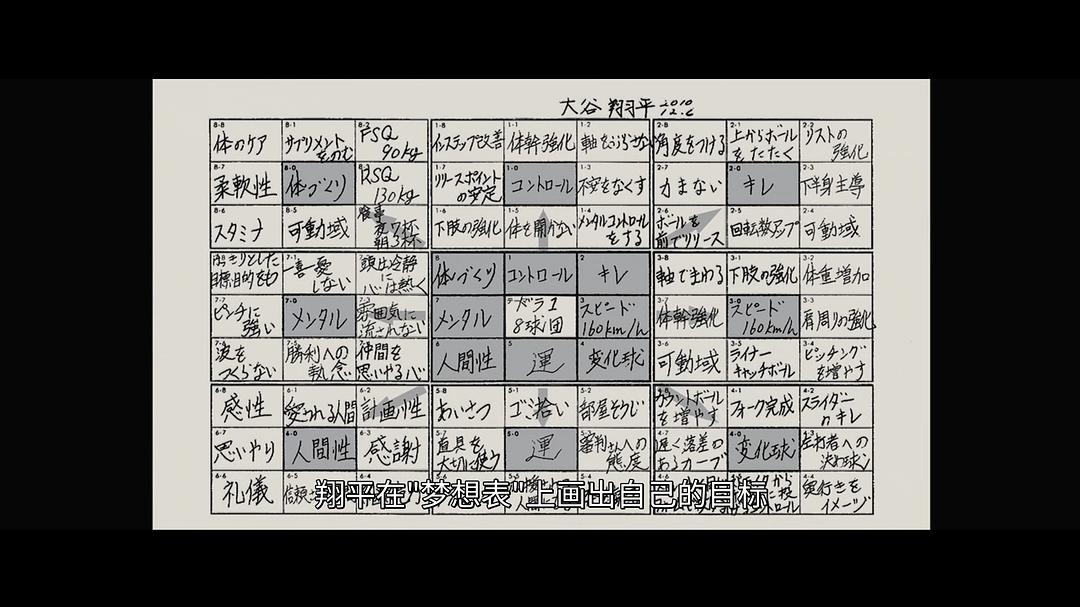 大谷翔平 2010 12.6
8-8 8-1 8-2 1-8 1-1 1-2 2-8 2-1 2-2
体のケア サプリメントをのむ FSQ 90kg インステップ改善 体幹強化 軸をぶらさない 角度をつける 上からボールをたたく リストの強化
8-7 8-0 1-7 1-0 1-3 2-7 2-0 2-3
柔軟性 体づくり RSQ 130kg リリースポイントの安定 コントロール 不安をなくす 力まない キレ 下半身主導
8-6 8-5 1-6 1-5 1-4 2-6 2-5 2-4
スタミナ 可動域 食事 夜7杯 朝3杯 下肢の強化 体を開かない メンタルコントロールをする ボールを前でリリース 回転数アップ 可動域
7-1 8 1 2 3-8 3-1 3-2
はっきりとした目標、目的をもつ 一喜一憂しない 頭は冷静に心は熱く 体づくり コントロール キレ 軸でまわる 下肢の強化 体重増加
7-7 7-0 7 3 3-7 3-0 3-3
ピンチに強い メンタル 雰囲気に流されない メンタル ドラ1 8球団 スピード 160km/h 体幹強化 スピード 160km/h 肩周りの強化
7-6 7-5 7-4 6 5 4 3-6 3-5 3-4
波をつくらない 勝利への執念 仲間を思いやる心 人間性 運 変化球 可動域 ライナーキャッチボール ピッチングを増やす
6-8 6-1 6-2 5-8 5-1 5-2 4-1 4-2
感性 愛される人間 計画性 あいさつ ゴミ拾い 部屋そうじ カウントボールを増やす フォーク完成 スライダーのキレ
6-7 6-0 6-3 5-7 5-0 5-3 4-7 4-0
思いやり 人間性 感謝 道具を大切に使う 運 審判さんへの態度 遅く落差のあるカーブ 変化球 左打者への決め球
6-6 6-5 4-4
礼儀 奥行きをイメージ
翔平在"梦想表"上画出自己的目标